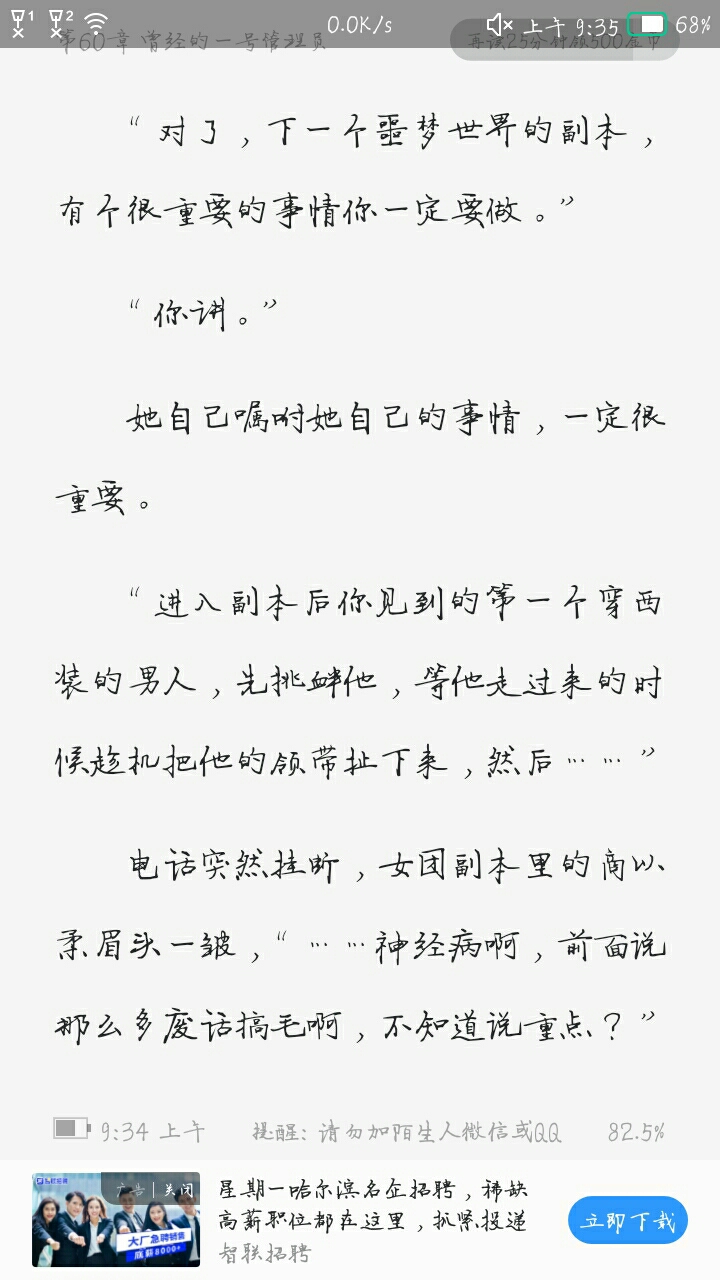 1 2 0.0K/s 上午 9:35 68%
第60章 曾经的一号管理员 再读25分钟领500金币
“对了，下一个噩梦世界的副本，
有个很重要的事情你一定要做。”
“你讲。”
她自己嘱咐她自己的事情，一定很
重要。
“进入副本后你见到的第一个穿西
装的男人，先挑衅他，等他走过来的时
候趁机把他的领带扯下来，然后……”
电话突然挂断，女团副本里的商以
柔眉头一皱，“……神经病啊，前面说
那么多废话搞毛啊，不知道说重点？”
9:34 上午 提醒：请勿加陌生人微信或QQ 82.5%
广告 | 关闭
大厂急聘销售
底薪8000+
星期一哈尔滨名企招聘，稀缺
高薪职位都在这里，抓紧投递
智联招聘
立即下载